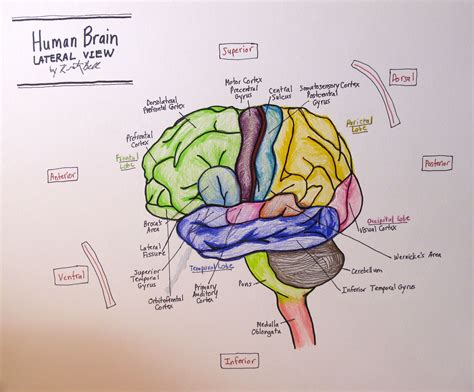 Human Brain
LATERAL VIEW
by
Superior
Dorsal
Motor Cortex
Precentral
Gyrus
Central
Sulcus
Somatosensory Cortex
Postcentral
Gyrus
Dorsolateral
Prefrontal Cortex
Prefrontal
Cortex
Parietal
Lobe
Frontal
Lobe
Anterior
Posterior
Broca's
Area
Occipital Lobe
Visual Cortex
Lateral
Fissure
Wernicke's Area
Superior
Temporal
Gyrus
Temporal Lobe
Ventral
Cerebellum
Orbitofrontal
Cortex
Primary
Auditory
Cortex
Pons
Inferior Temporal Gyrus
Medulla
Oblongata
Inferior